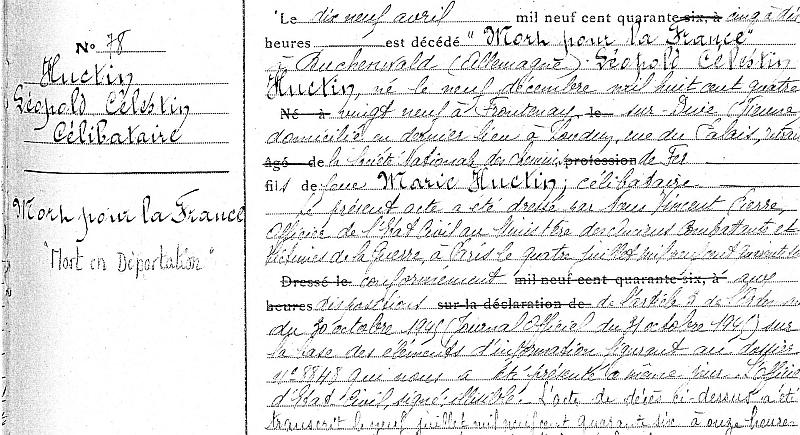 N° 78
Huctin
Léopold Célestin
Célibataire
Mort pour la France
"Mort en Déportation"
Le dix neuf avril mil neuf cent quarante six, à cinq à dix
heures est décédé "Mort pour la France"
à Buchenwald (Allemagne) Léopold Célestin
Huctin, né le neuf décembre mil huit cent quatre
Né à vingt neuf à Frontenay, le sur Dive (Vienne
domicilié en dernier lieu à Loudun, rue du Calais, retrai
âgé de la Société Nationale des Chemins profession de Fer
fils de feue Marie Huctin, célibataire
Le présent acte a été dressé par Nous Vincent Pierre,
Officier de l'Etat Civil au Ministère des Anciens Combattants et
Victimes de la Guerre, à Paris le quatre juillet mil neuf cent quarante
Dressé le conformément mil neuf cent quarante six, à aux
heures dispositions sur la déclaration de de l'article 3 de l'Ordon
du 30 octobre 1945 (Journal Officiel du 31 octobre 1945) sur
la base des éléments d'information figurant au dossier
n° 8848 qui nous a été présenté à même jour. L'Officier
d'Etat Civil, signé: illisible. L'acte de décès ci-dessus a été
transcrit le neuf juillet mil neuf cent quarante six à onze heure